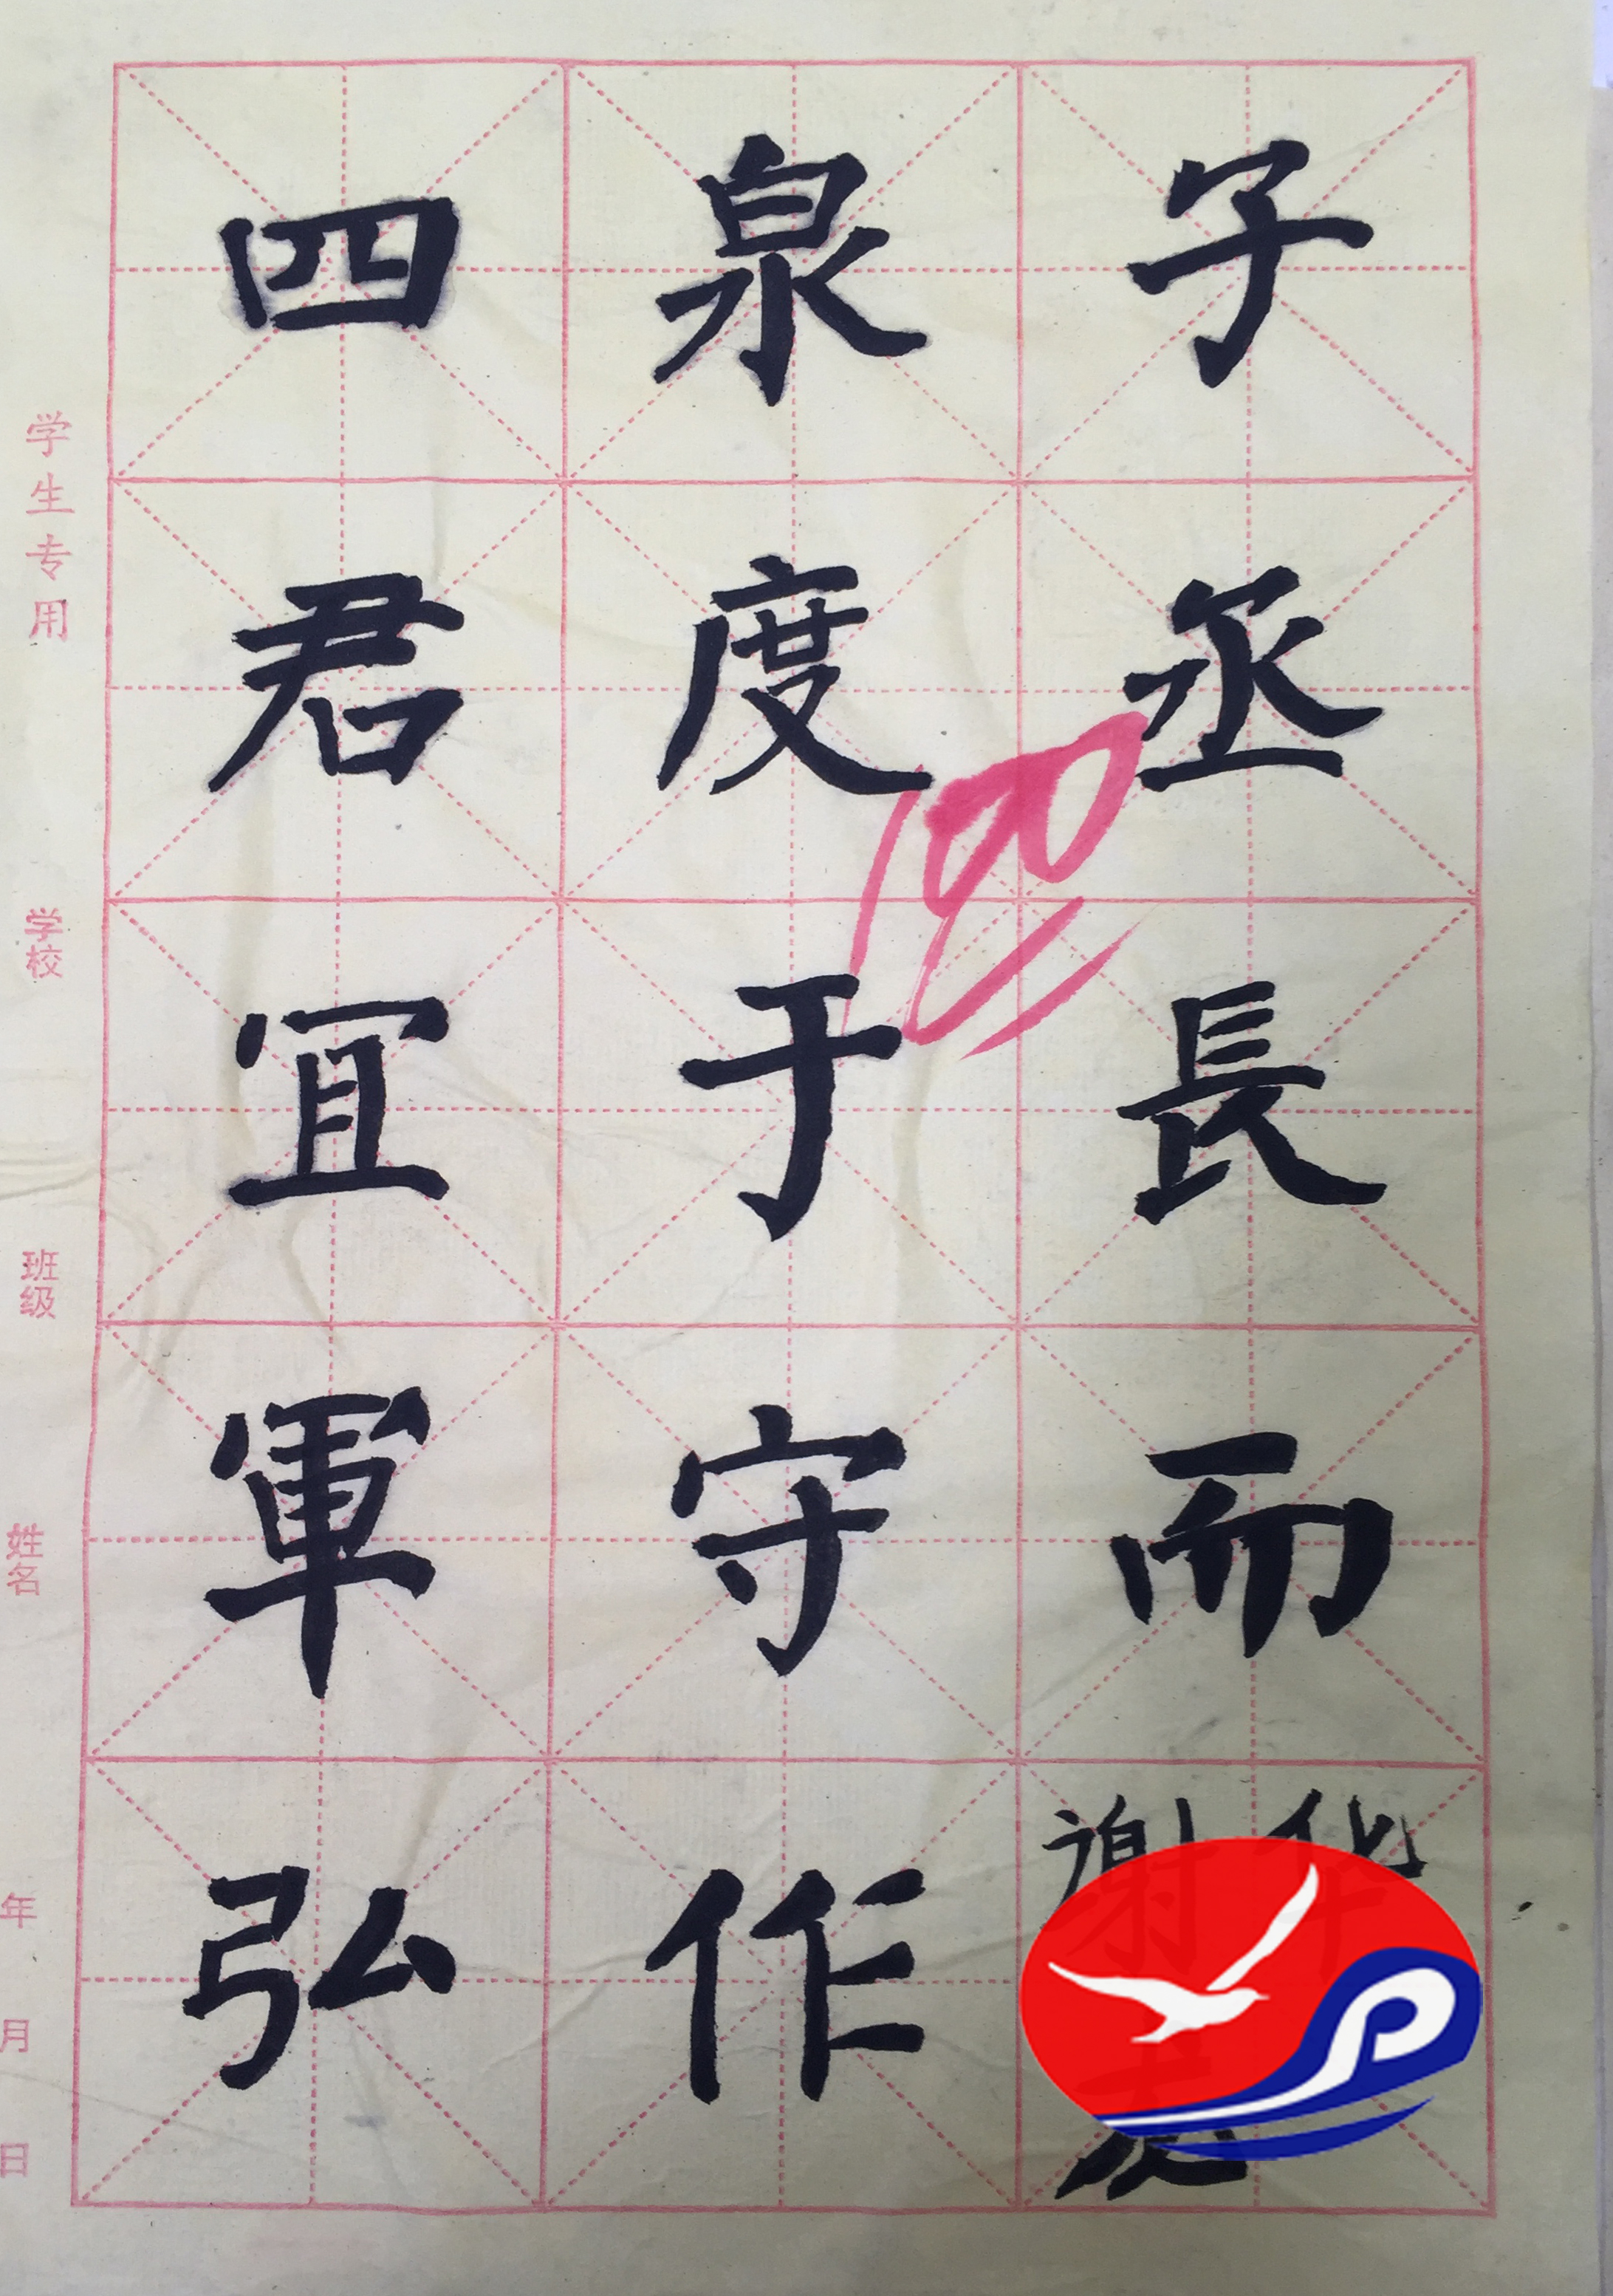 四泉子
君度丞
冝于長
軍守而
弘作
谢华
100
学生专用
学校
班级
姓名
年
月
日